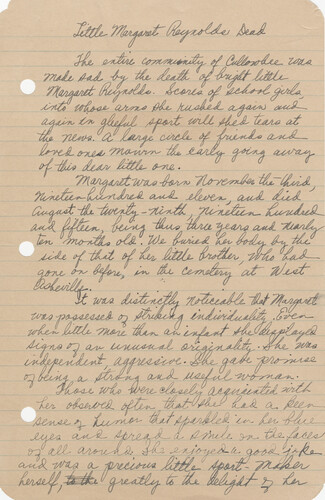 Little Margaret Reynolds Dead
The entire community of Cullowhee was
made sad by the death of bright little
Margaret Reynolds. Scores of school girls
into whose arms she rushed again and
again in gleeful sport will shed tears at
the news. A large circle of friends and
loved ones mourn the early going away
of this dear little one.
Margaret was born November the third,
Nineteen hundred and eleven, and died
August the twenty-ninth, nineteen hundred
and fifteen, being thus three years and nearly
ten months old. We buried her body by the
side of that of her little brother, who had
gone on before, in the cemetery at West
Asheville.
It was distinctly noticeable that Margaret
was possessed of striking individuality. Even
when little more than an infant she displayed
signs of an unusual originality. She was
independent, aggressive. She gave promise
of being a strong and useful woman.
Those who were closely acquainted with
her observed often that she had a keen
sense of humor that sparkled in her blue
eyes and spread a smile on the faces
of all around. She enjoyed a good joke
and was a precious little sport-maker
herself, to the greatly to the delight of her